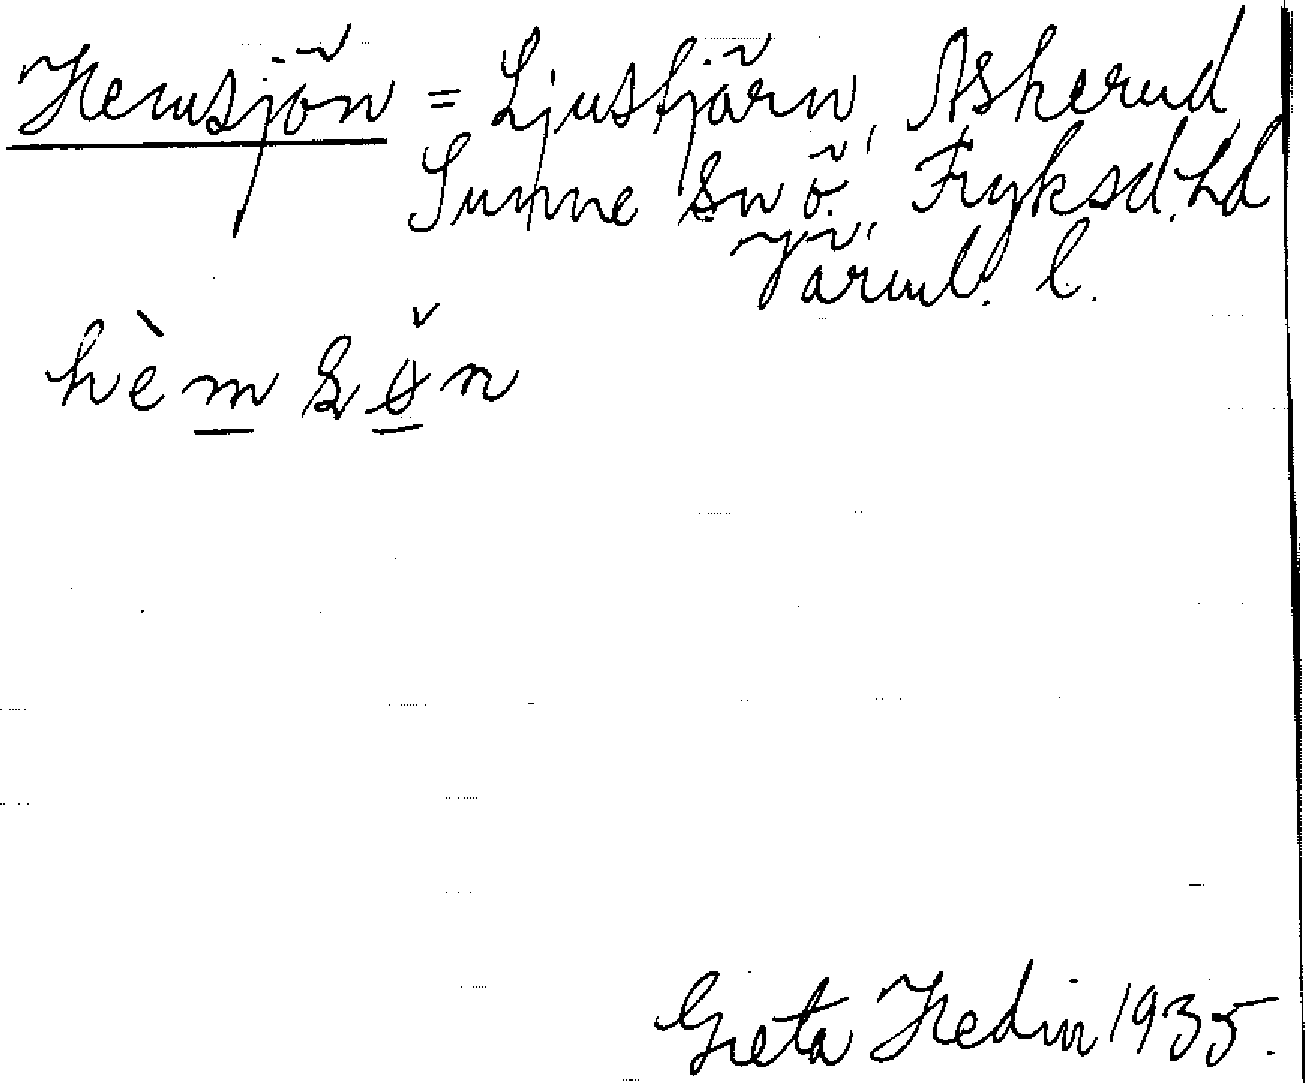 Hemsjön = Ljustjärn, Askerud,
Sunne sn ö., Fryksd. hd
Värml. l.
hèm
Greta Hedin 1935.